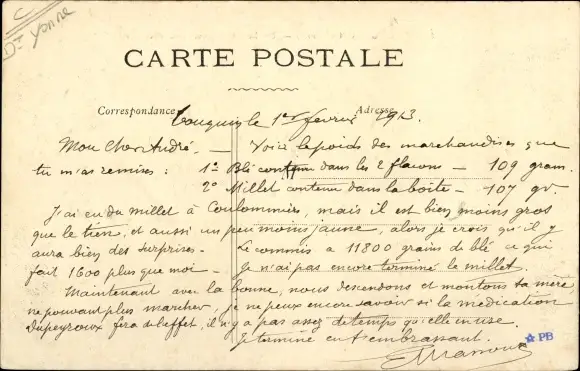 C
Dt Yonne
CARTE POSTALE
Correspondance
Adresse
Touquin, le 1er février 1913.
Mon cher André. — Voici le poids des marchandises que
tu m'as remises : 1° Blé contenu dans les 2 flacons — 109 gram.
2° Millet contenu dans la boîte — 107 gr.
J'ai eu du millet à Coulommiers, mais il est bien moins gros
que le tien, et aussi un peu moins jaune, alors je crois qu'il y
aura bien des surprises. — Le commis a 11800 grains de blé ce qui
fait 1600 plus que moi — Je n'ai pas encore terminé le millet.
Maintenant avec la bonne, nous descendons et montons ta mère
ne pouvant plus marcher, je ne peux encore savoir si la médication
Dupeyroux fera de l'effet, il n'y a pas assez de temps qu'elle en use.
Je termine en t'embrassant.
PB